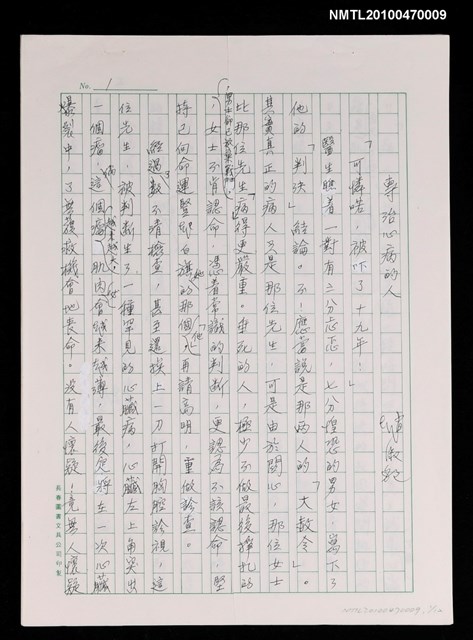 NMTL20100470009
No. 1
專治心病的人
趙淑敏
「可憐喏,被吓了十九年。」
醫生瞧着一對有三分忐忑,七分惶恐的男女,寫下了
他的「判決」結論。不,應當說是那兩人的「大赦令」。
其實真正的病人只是那位先生,可是由於關心,那位女士
比那位先生病得更嚴重。垂死的人,極少不做最後掙扎的
,男士都已放棄戰鬥,
,女士不肯認命,憑着常識的判斷,更認為不該認命,堅
持已向命運豎起白旗的她那個「他」再請高明,重做診查。
經過數不清檢查,甚至還挨上一刀打開胸腔診視,這
位先生,被判斷生了一種罕見的心臟病,心臟左上角突出
一個瘤,這個病肌肉會越來越薄,最後定將在一次心臟
爆裂中,了無後救機會地喪命。沒有人懷疑,竟無人懷疑
長春圖書文具公司印製
NMTL20100470009